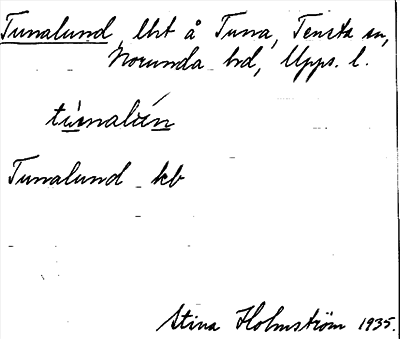 Tunalund lht å Tuna, Tensta sn,
Norunda hd, Upps. l.
Tunalund kb
Stina Holmström 1935.